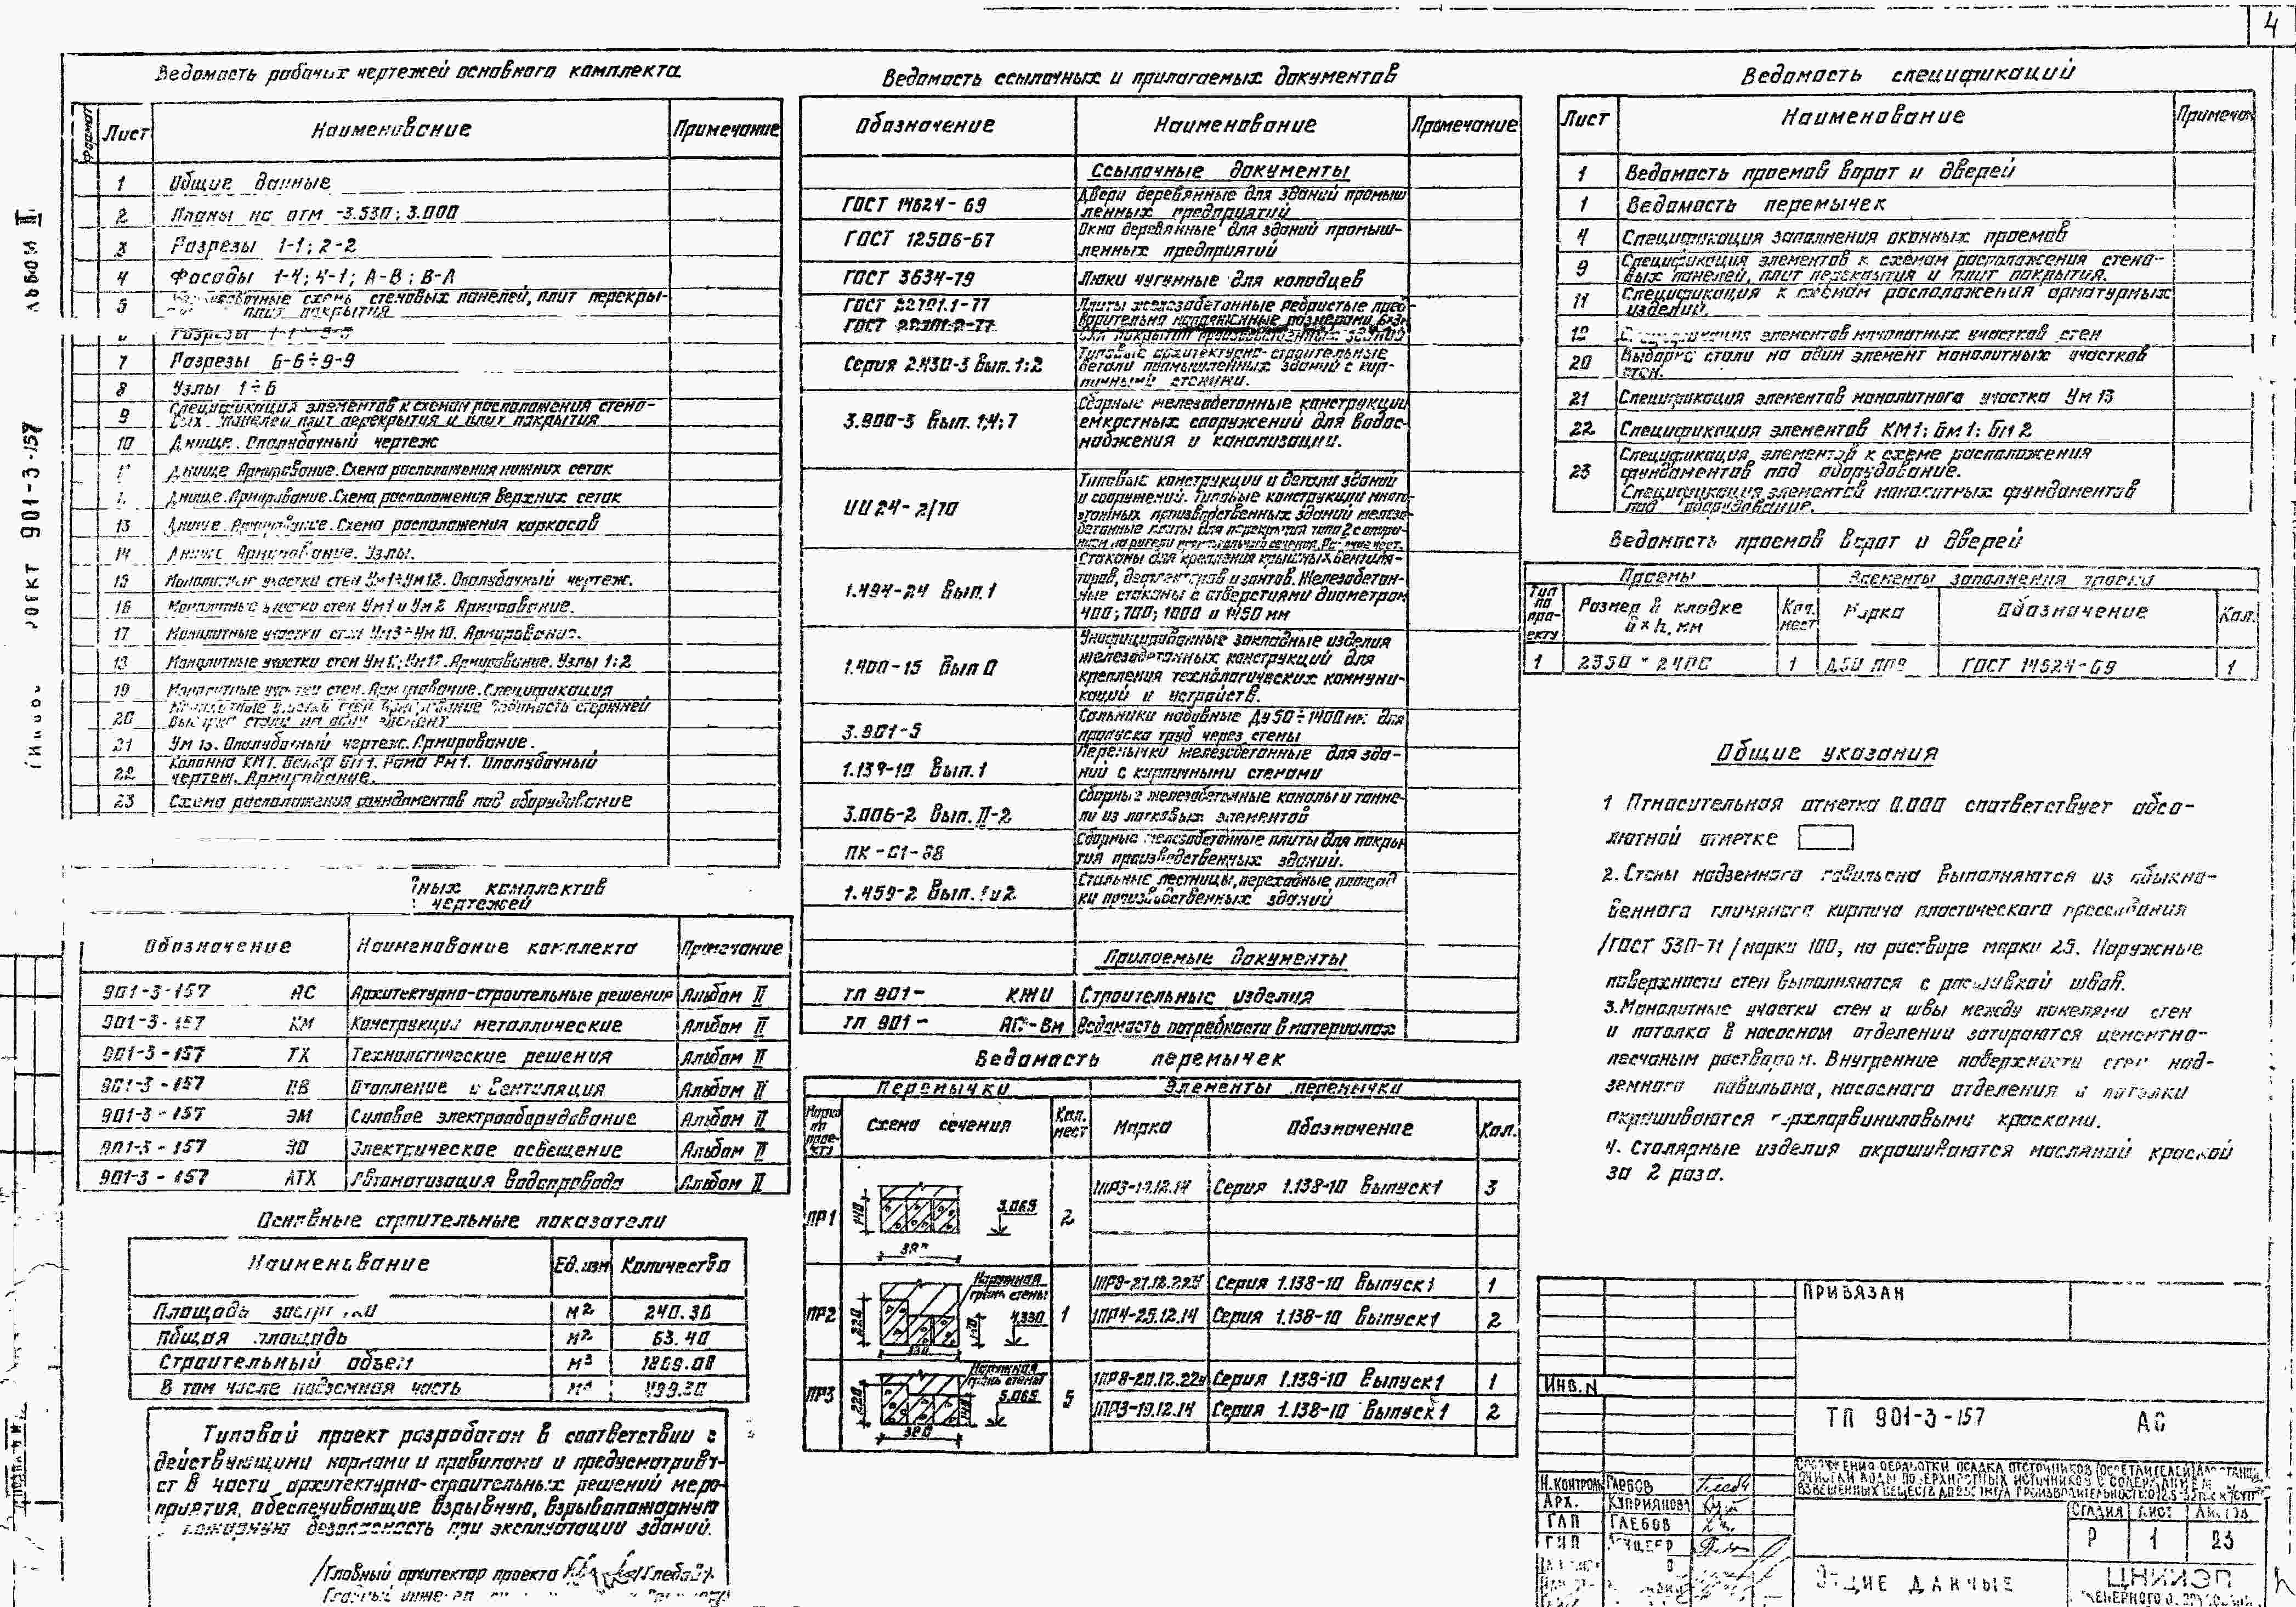 4
Ведомость рабочих чертежей основного комплекта
Формат Лист Наименование Примечание
1 Общие данные
2 Планы на отм -3.530; 3.000
3 Разрезы 1-1; 2-2
4 Фасады 1-4; 4-1; А-В; В-А
5 схемы стеновых панелей, плит перекры-
плит покрытия
Разрезы
7 Разрезы 6-6÷9-9
8 Узлы 1÷6
9 Спецификация элементов к схемам расположения стено-
вых панелей плит перекрытия и плит покрытия
10 Днище. Опалубочный чертеж
Днище. Армирование. Схема расположения нижних сеток
Днище. Армирование. Схема расположения верхних сеток
13 Днище. Армирование. Схема расположения каркасов
14 Днище. Армирование. Узлы.
15 Монолитные участки стен Ум1÷Ум12. Опалубочный чертеж.
16 Монолитные участки стен Ум1 и Ум2 Армирование.
17 Монолитные участки стен Ум3÷Ум10. Армирование.
18 Монолитные участки стен Армирование. Узлы 1:2
19 Монолитные участки стен. Армирование. Спецификация
20 Монолитные участки стен Армирование Ведомость стержней
Выборка стали на один элемент
21 Ум 13. Опалубочный чертеж. Армирование.
22 Колонна КМ1. Балка Рама Рм1. Опалубочный
чертеж. Армирование.
23 Схема расположения фундаментов под оборудование
комплектов
чертежей
Обозначение Наименование комплекта Примечание
901-3-157 АС Архитектурно-строительные решения Альбом II
901-3-157 КМ Конструкции металлические Альбом II
901-3-157 ТХ Технологические решения Альбом II
901-3-157 ОВ Отопление и вентиляция Альбом II
901-3-157 ЭМ Силовое электрооборудование Альбом II
901-3-157 ЭО Электрическое освещение Альбом II
901-3-157 АТХ Автоматизация водопровода Альбом II
Основные строительные показатели
Наименование Ед. изм Количество
Площадь застройки м2 240.30
Общая площадь м2 63.40
Строительный объем м3
В том числе подземная часть
Типовой проект разработан в соответствии с
действующими нормами и правилами и предусматрива-
ет в части архитектурно-строительных решений меро-
приятия, обеспечивающие взрывную, взрывопожарную
и пожарную безопасность при эксплуатации зданий.
/Главный архитектор проекта
Ведомость ссылочных и прилагаемых документов
Обозначение Наименование Примечание
Ссылочные документы
ГОСТ 14624-69 Двери деревянные для зданий промыш
ленных предприятий
ГОСТ 12506-67 Окна деревянные для зданий промыш-
ленных предприятий
ГОСТ 3634-79 Люки чугунные для колодцев
ГОСТ 22701.1-77 Плиты железобетонные ребристые пред-
ГОСТ варительно напряженные размерами 6×3м
для покрытий производственных зданий
Серия 2.430-3 Вып. 1:2 Типовые архитектурно-строительные
детали промышленных зданий с кир-
пичными стенами.
3.900-3 Вып. 1;4;7 Сборные железобетонные конструкции
емкостных сооружений для водос-
набжения и канализации.
ИИ 24-2/70 Типовые конструкции и детали зданий
и сооружений. Типовые конструкции много-
этажных производственных зданий железо-
бетонные плиты для перекрытия типа 2 с опира-
нием на ригели прямоугольного сечения.
1.494-24 Вып. 1 Стаканы для крепления крышных вентиля-
торов, дефлекторов и зонтов. Железобетон-
ные стаканы с отверстиями диаметром
400; 700; 1000 и 1450 мм
1.400-15 Вып 0 Унифицированные закладные изделия
железобетонных конструкций для
крепления технологических коммуни-
каций и устройств.
3.901-5 Сальники набивные Ду50÷1400мм для
пропуска труб через стены
Вып. 1 Перемычки железобетонные для зда-
ний с кирпичными стенами
3.006-2 Вып. II-2 Сборные железобетонные каналы и тонне-
ли из лотковых элементов
ПК-01-88 Сборные железобетонные плиты для покры
тия производственных зданий.
1.459-2 Вып. 1и2 Стальные лестницы, переходные площад
ки производственных зданий
Прилаемые документы
ТП 901- КЖИ Строительные изделия
ТП 901- АС-Вм Ведомость потребности в материалах
Ведомость перемычек
Перемычки Элементы перемычки
Марка по прое-кту Схема сечения Кол. мест Марка Обозначение Кол.
ПР1 140 380 3.065 2 Серия 1.138-10 Выпуск1 3
ПР2 220 Наружная грань стены 140 4.330 1 Серия 1.138-10 Выпуск1 1
1ПР4-25.12.14 Серия 1.138-10 Выпуск1 2
ПР3 220 Наружная грань стены 140 5.065 380 5 Серия 1.138-10 Выпуск1 1
1ПР3-19.12.14 Серия 1.138-10 Выпуск1 2
Ведомость спецификаций
Лист Наименование Примечан
1 Ведомость проемов ворот и дверей
1 Ведомость перемычек
4 Спецификация заполнения оконных проемов
9 Спецификация элементов к схемам расположения стено-
вых панелей, плит перекрытия и плит покрытия.
11 Спецификация к схемам расположения арматурных
изделий.
19 Спецификация элементов монолитных участков стен
20 Выборка стали на один элемент монолитных участков
стен.
21 Спецификация элементов монолитного участка Ум 13
22 Спецификация элементов КМ1; Бм1; Бм 2
23 Спецификация элементов к схеме расположения
фундаментов под оборудование.
Спецификация элементов монолитных фундаментов
под оборудование.
Ведомость проемов ворот и дверей
Проемы Элементы заполнения проема
Тип по про-екту Размер в кладке b×h, мм Кол. мест Марка Обозначение Кол.
1 2350 × 2400 1 ГОСТ 14624-69 1
Общие указания
1 Относительная отметка 0.000 соответствует абсо-
лютной отметке
2. Стены надземного павильона выполняются из обыкно-
венного глиняного кирпича пластического прессования
/ГОСТ 530-71/ марки 100, на растворе марки 25. Наружные
поверхности стен выполняются с расшивкой швов.
3. Монолитные участки стен и швы между панелями стен
и потолка в насосном отделении затираются цементно-
песчаным раствором. Внутренние поверхности стен над-
земного павильона, насосного отделения и потолки
окрашиваются перхлорвиниловыми красками.
4. Столярные изделия окрашиваются масляной краской
за 2 раза.
ПРИВЯЗАН
ИНВ. N
ТП 901-3-157 АС
Н. КОНТРОЛЬ ГЛЕБОВ
АРХ. КУПРИЯНОВА
ГАП ГЛЕБОВ
ГИП
СООРУЖЕНИЯ ОБРАБОТКИ ОСАДКА ОТСТОЙНИКОВ (ОСВЕТЛИТЕЛЕЙ)
ОЧИСТКИ ВОДЫ ПОВЕРХНОСТНЫХ ИСТОЧНИКОВ С СОДЕРЖАНИЕМ
ВЗВЕШЕННЫХ ВЕЩЕСТВ
СТАДИЯ ЛИСТ ЛИСТОВ
Р 1 23
ОБЩИЕ ДАННЫЕ
ЦНИИЭП
АЛЬБОМ II
ПРОЕКТ 901-3-157